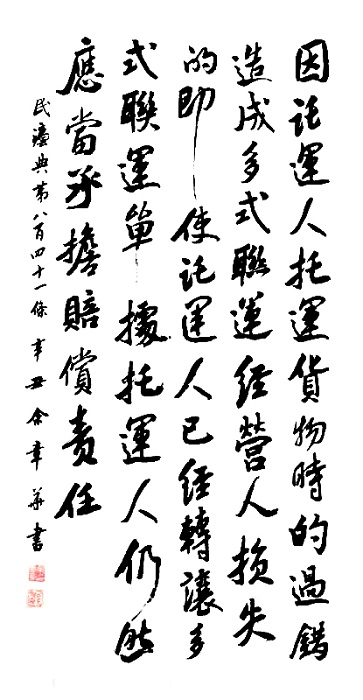 因託運人托運貨物時的過錯
造成多式聯運經營人損失
的即使託運人已經轉讓多
式聯運單據托運人仍然
應當承擔賠償責任
民灋典第八百四十一條辛丑余章書